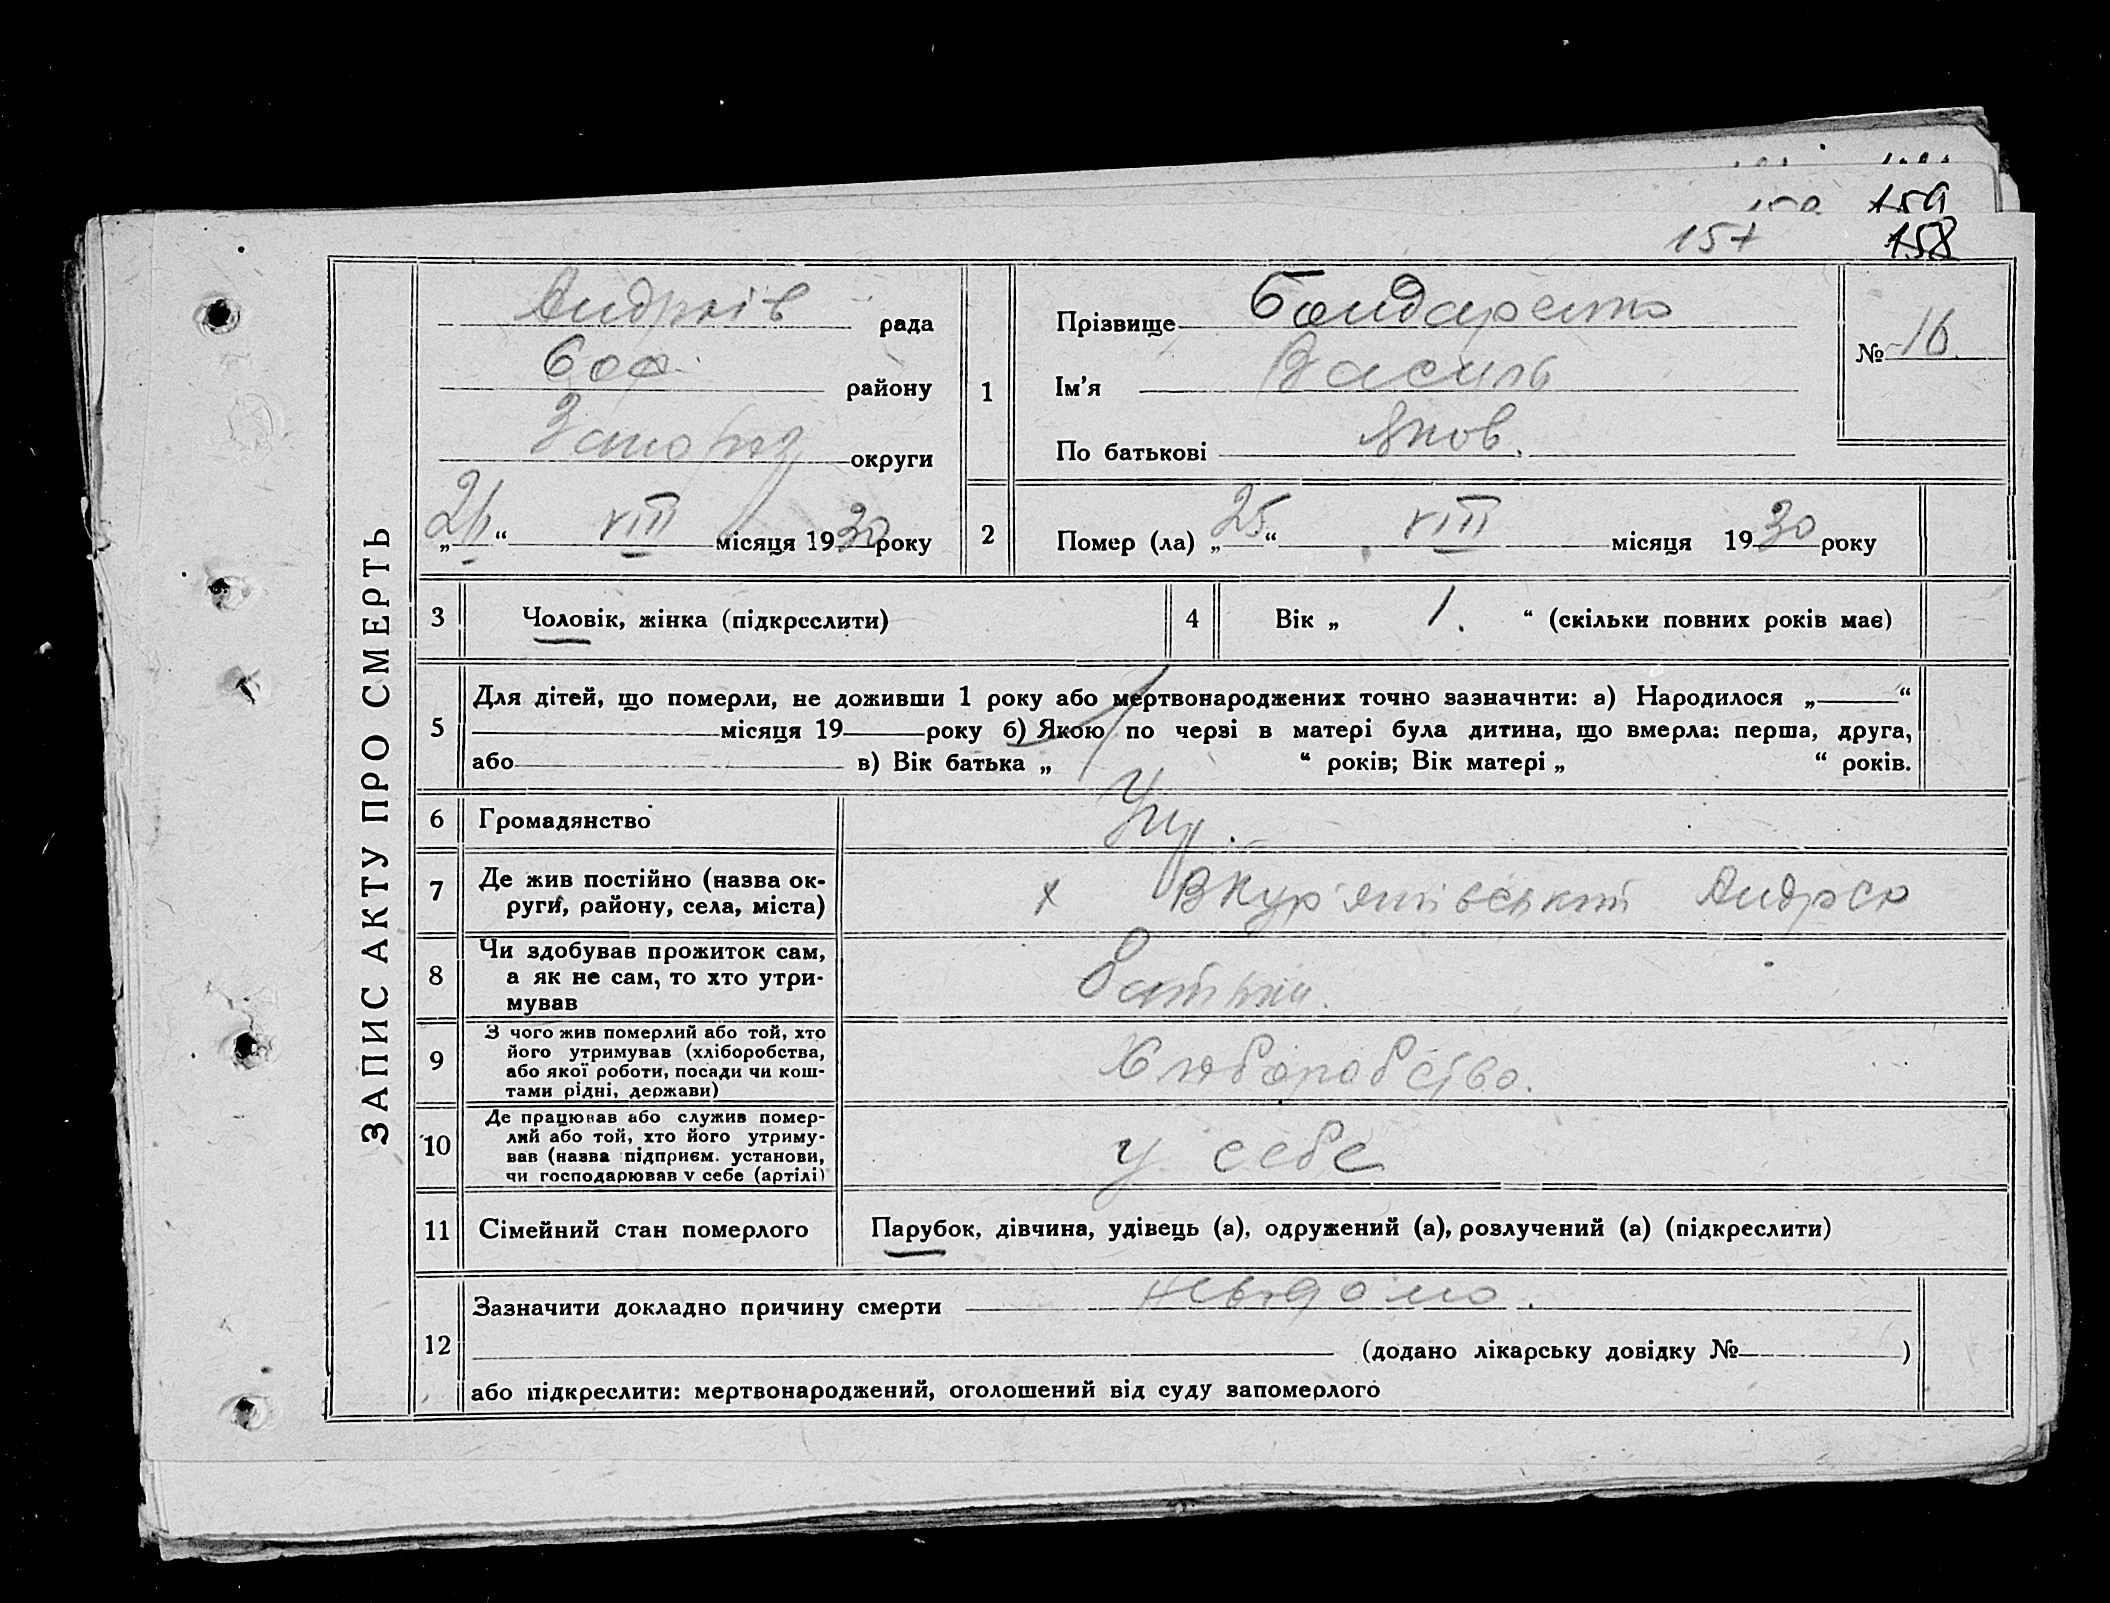 159
157 158
ЗАПИС АКТУ ПРО СМЕРТЬ
Андріїв рада
Соф. району
Запоріз округи
„26“ VIII місяця 1930 року
1
Прізвище Бондаренко
Ім'я Василь
По батькові Яков.
№ 16.
2
Помер (ла) „25“ VIII місяця 1930 року
3 Чоловік, жінка (підкреслити)
4 Вік „ 1. “ (скільки повних років має)
5
Для дітей, що померли, не доживши 1 року або мертвонароджених точно зазначити: а) Народилося „ “
місяця 19 року б) Якою по черзі в матері була дитина, що вмерла: перша, друга,
або в) Вік батька „ “ років; Вік матері „ “ років.
6 Громадянство Укр.
7 Де жив постійно (назва ок-
руги, району, села, міста)
х Андрєв
8 Чи здобував прожиток сам,
а як не сам, то хто утри-
мував
батьки.
9 З чого жив померлий або той, хто
його утримував (хліборобства,
або якої роботи, посади чи кош-
тами рідні, держави)
Хліборобство.
10 Де працював або служив помер-
лий або той, хто його утриму-
вав (назва підприєм. установи,
чи господарював у себе (артілі)
у себе
11 Сімейний стан померлого Парубок, дівчина, удівець (а), одружений (а), розлучений (а) (підкреслити)
12
Зазначити докладно причину смерти невідомо.
(додано лікарську довідку № )
або підкреслити: мертвонароджений, оголошений від суду запомерлого